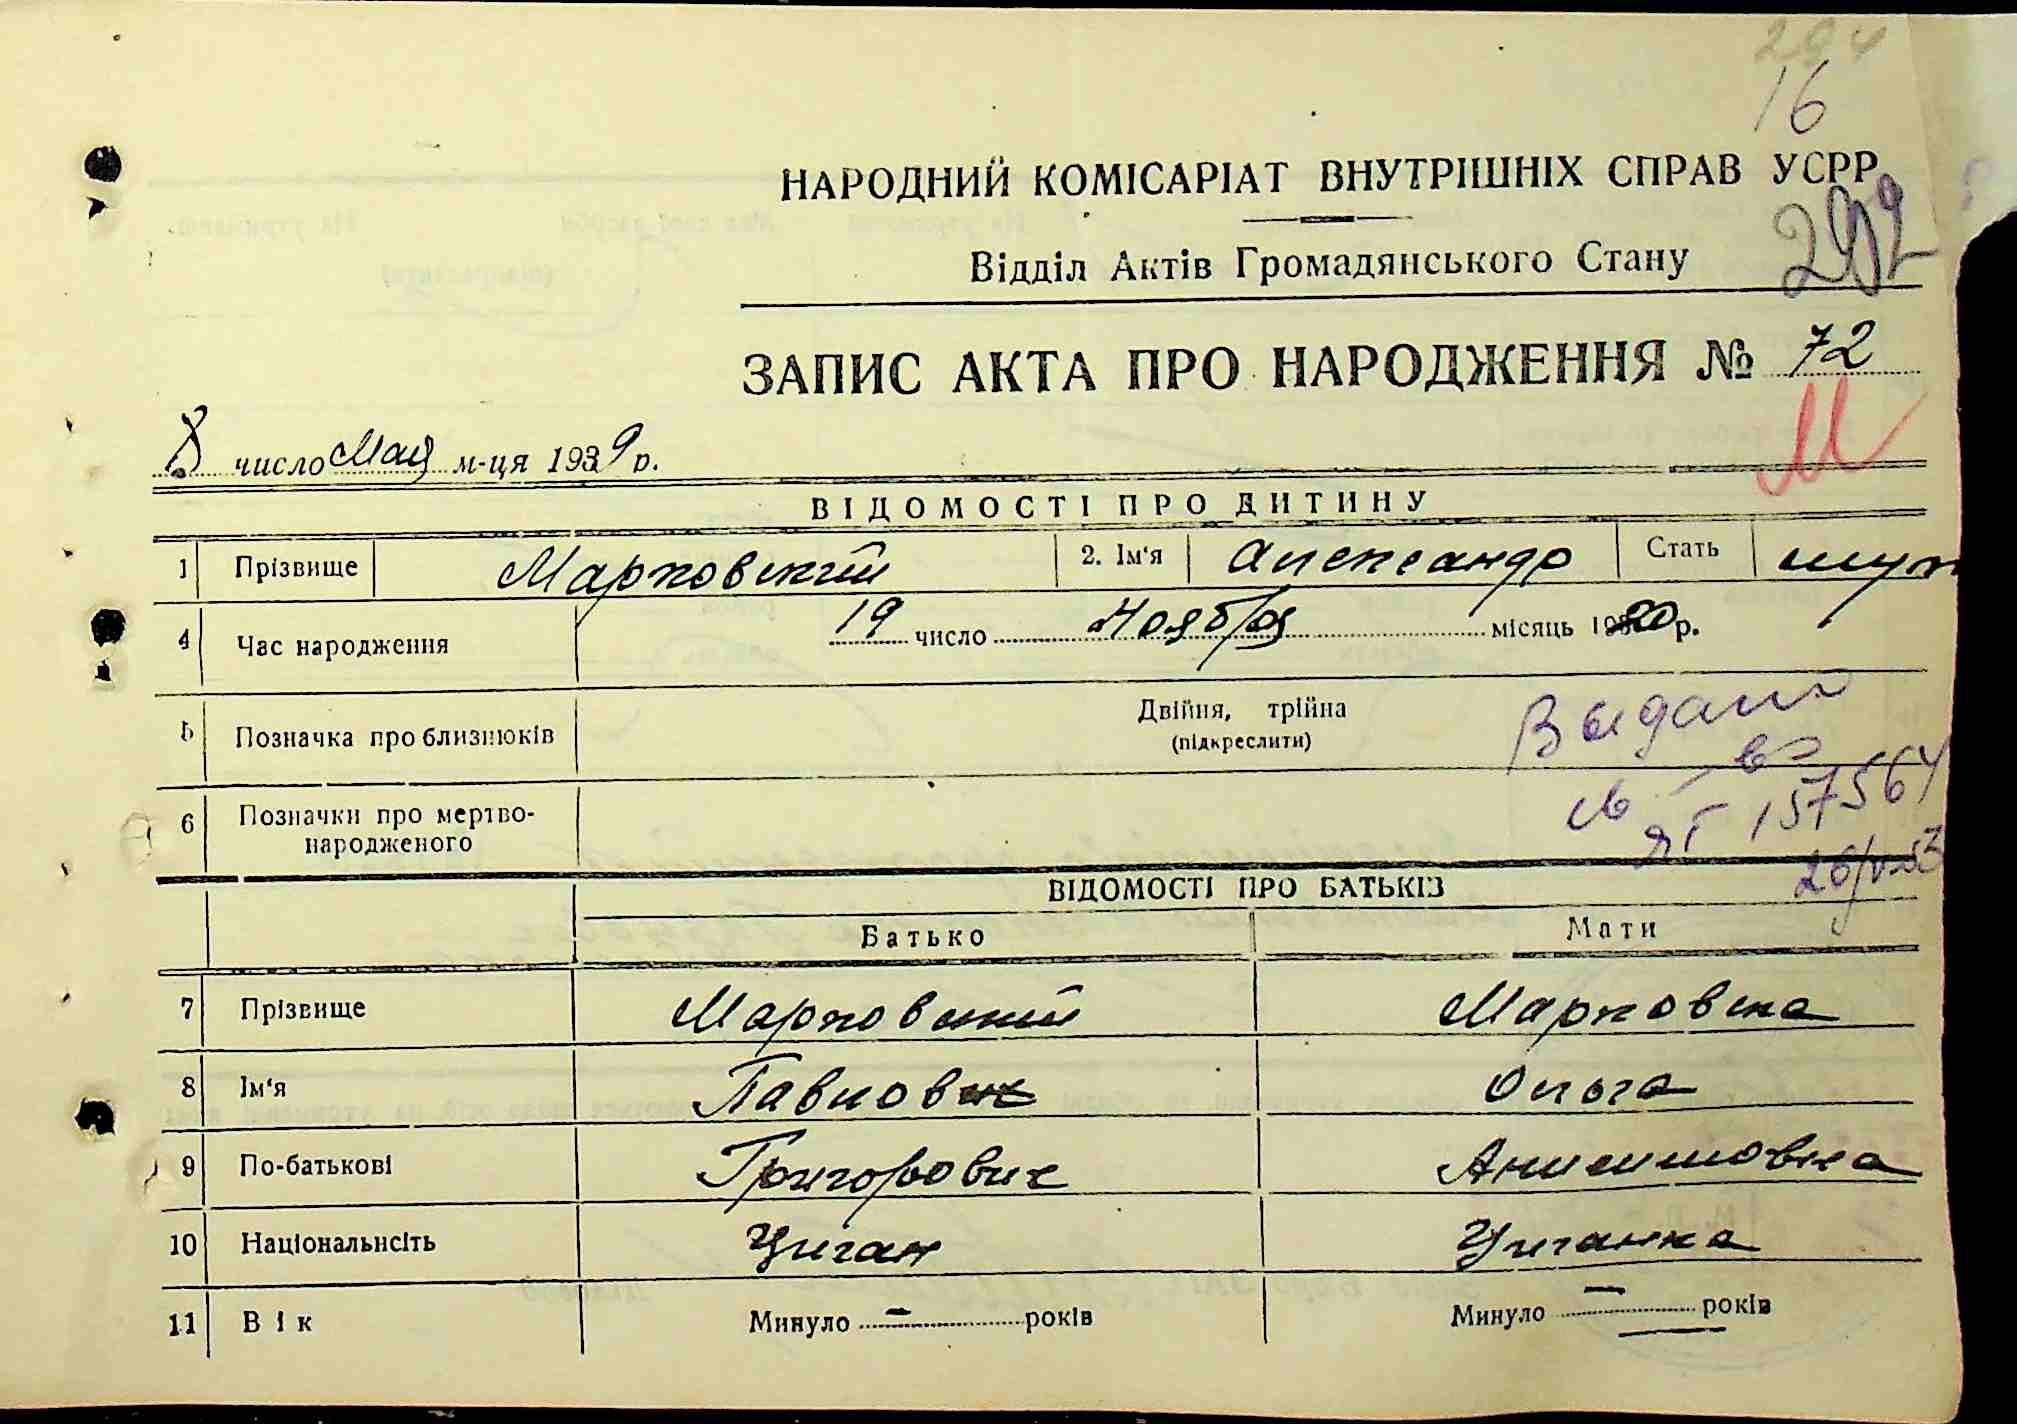 294
16
НАРОДНИЙ КОМІСАРІАТ ВНУТРІШНІХ СПРАВ УСРР
292
Відділ Актів Громадянського Стану
ЗАПИС АКТА ПРО НАРОДЖЕННЯ № 72
М
8 число Мая м-ця 1939 р.
ВІДОМОСТІ ПРО ДИТИНУ
1 Прізвище Марковский 2. Ім'я Александр Стать муж
4 Час народження 19 число Ноября місяць 1920 р.
5 Позначка про близнюків Двійня, трійна
(підкреслити)
Выдано
6 Позначки про мертво-
народженого
св ЯГ 157564
26/V-53
ВІДОМОСТІ ПРО БАТЬКІВ
Батько Мати
7 Прізвище Марковский Марковска
8 Ім'я Ольга
9 По-батькові Григорович Анисимовна
10 Національність Циган Циганка
11 Вік Минуло — років Минуло — років